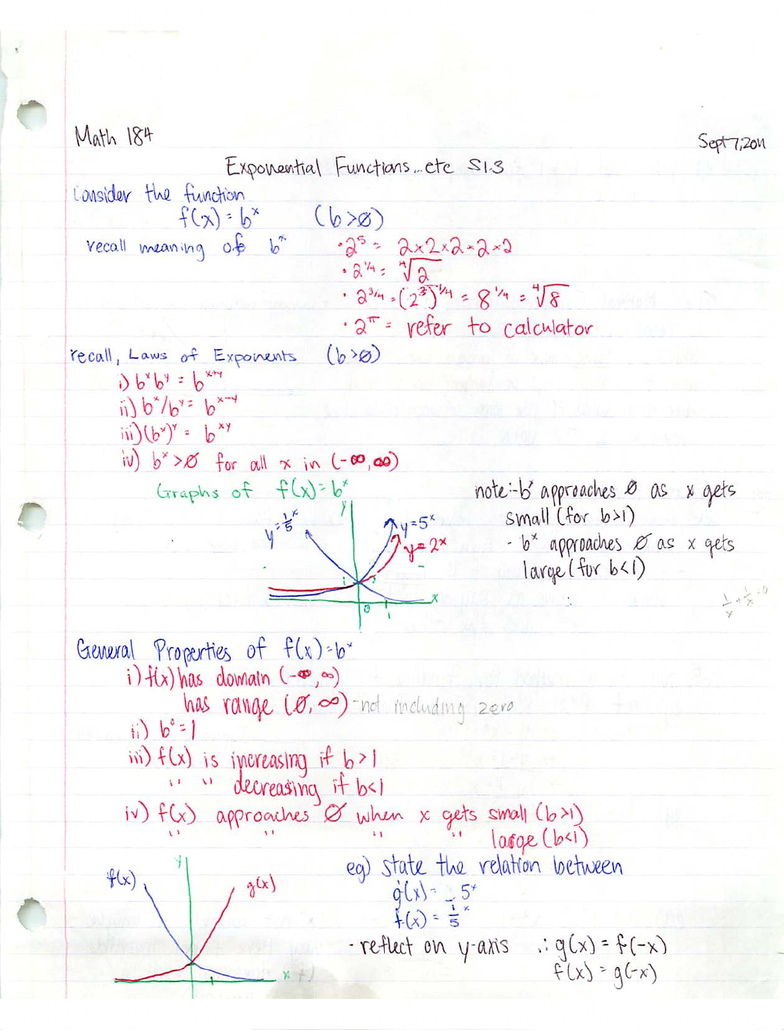 Math 184
Sept 7, 2011
Exponential Functions...etc S1.3
Consider the function
f(x) = bˣ (b>∅)
recall meaning of bˣ
· 2⁵ = 2×2×2×2×2
· 2^(1/4) = ⁴√2
· 2^(3/4) = (2³)^(1/4) = 8^(1/4) = ⁴√8
· 2^π = refer to calculator
recall, Laws of Exponents (b>∅)
i) bˣbʸ = bˣ⁺ʸ
ii) bˣ/bʸ = bˣ⁻ʸ
iii) (bˣ)ʸ = bˣʸ
iv) bˣ>∅ for all x in (-∞, ∞)
Graphs of f(x)=bˣ
y
y=1/5ˣ
y=5ˣ
y=2ˣ
1
x
0
1
note:- bˣ approaches ∅ as x gets
small (for b>1)
- bˣ approaches ∅ as x gets
large (for b<1)
General Properties of f(x)=bˣ
i) f(x) has domain (-∞, ∞)
has range (∅, ∞) -not including zero
ii) b⁰=1
iii) f(x) is increasing if b>1
" " decreasing if b<1
iv) f(x) approaches ∅ when x gets small (b>1)
" " " " large (b<1)
y
f(x)
g(x)
x
eg) state the relation between
g(x) = 5ˣ
f(x) = 1/5ˣ
- reflect on y-axis ∴ g(x) = f(-x)
f(x) = g(-x)